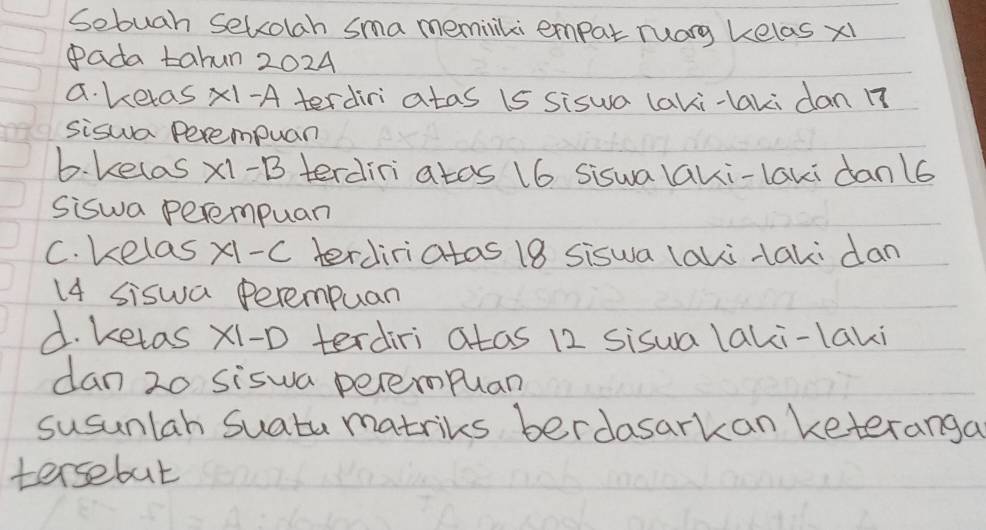 Sebuah Sekolah sma memiliki empat ruang kelas XI
Pada tahun 2024
a. Kelas XI-A terdiri atas 15 siswa laki-laki dan 17
siswa Perempuan
b. kelas XI-B terdiri atas 16 siswa laki-laki dan 16
siswa perempuan
C. kelas XI-C terdiri atas 18 siswa laki-laki dan
14 siswa Perempuan
d. kelas XI-D terdiri atas 12 siswa laki-laki
dan 20 siswa perempuan
susunlah Suatu matriks berdasarkan keteranga
tersebut